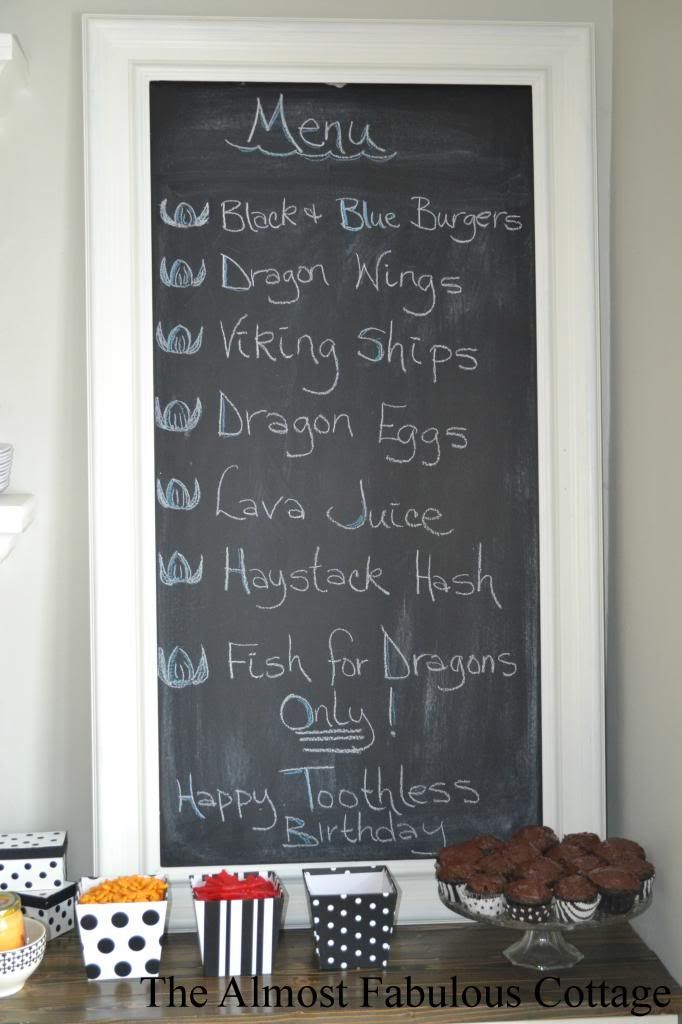 Menu
Black & Blue Burgers
Dragon Wings
Viking Ships
Dragon Eggs
Lava Juice
Haystack Hash
Fish for Dragons
Only!
Happy Toothless
Birthday
The Almost Fabulous Cottage